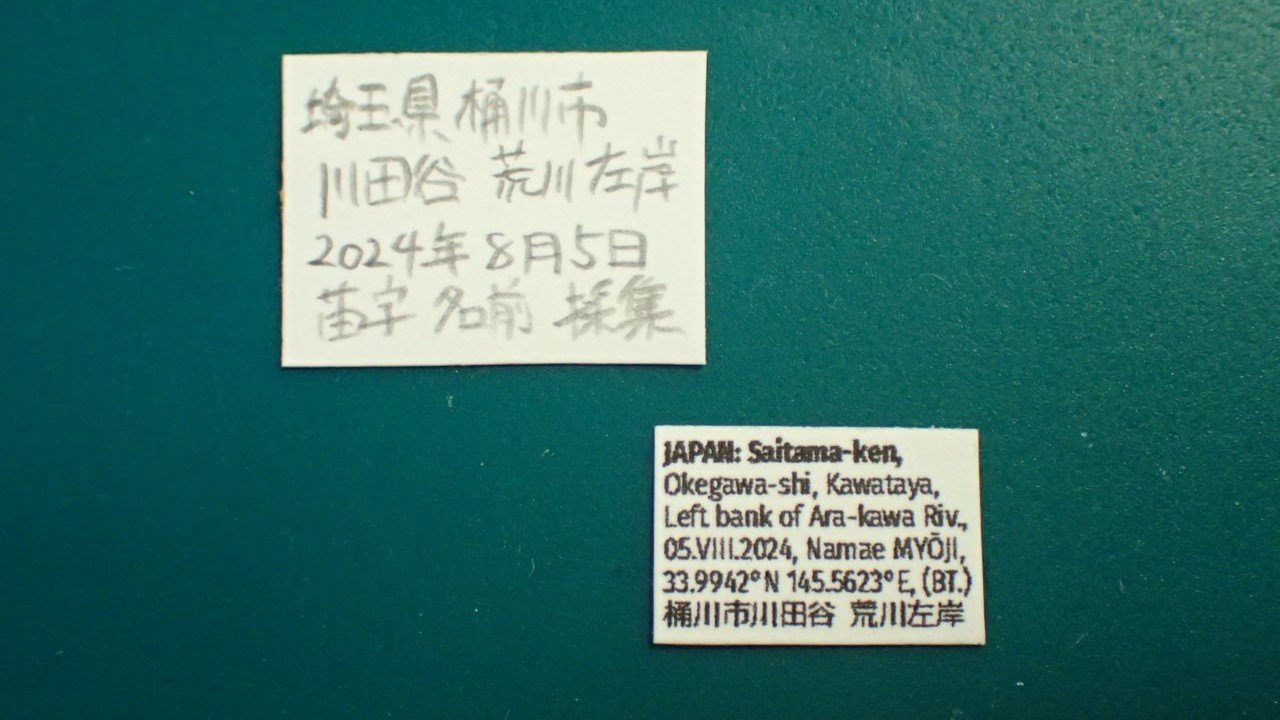 埼玉県 桶川市
川田谷 荒川左岸
2024年8月5日
苗字 名前 採集
JAPAN: Saitama-ken,
Okegawa-shi, Kawataya,
Left bank of Ara-kawa Riv.,
05.VIII.2024, Namae MYŌJI,
33.9942°N 145.5623°E, (BT.)
桶川市川田谷 荒川左岸